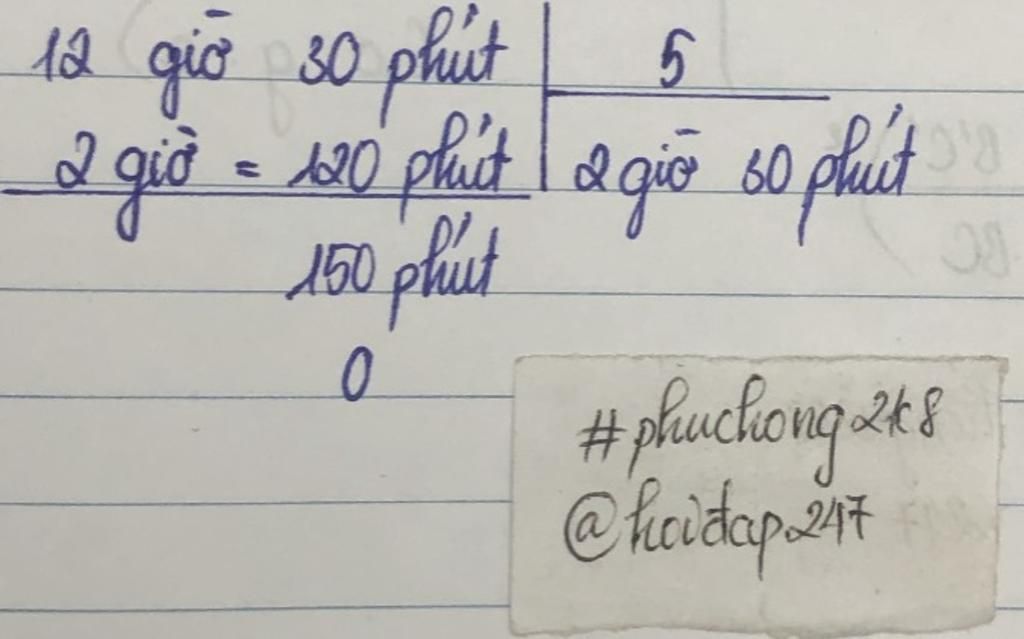 12 giờ 30 phút 5
2 giờ = 120 phút 2 giờ 30 phút
150 phút
0
#phuchong2k8
@hoidap247